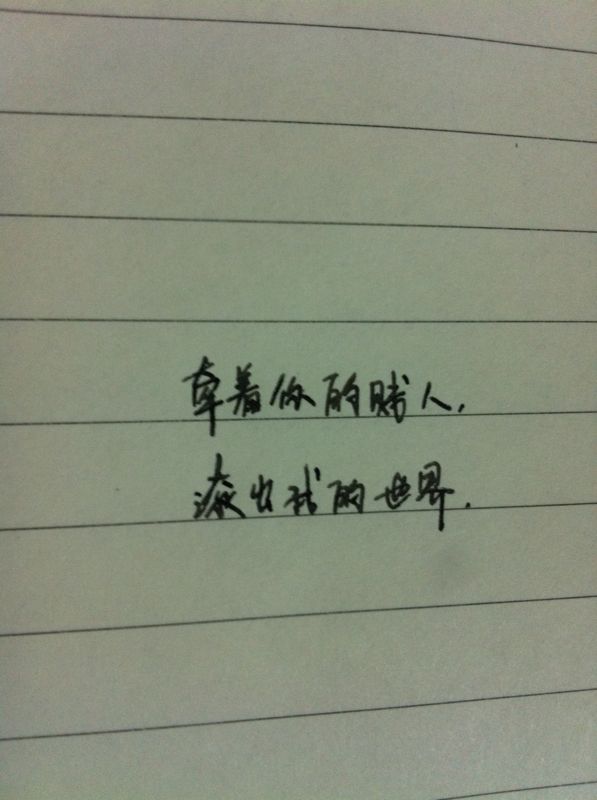 牵着你的贱人.
滚出我的世界.